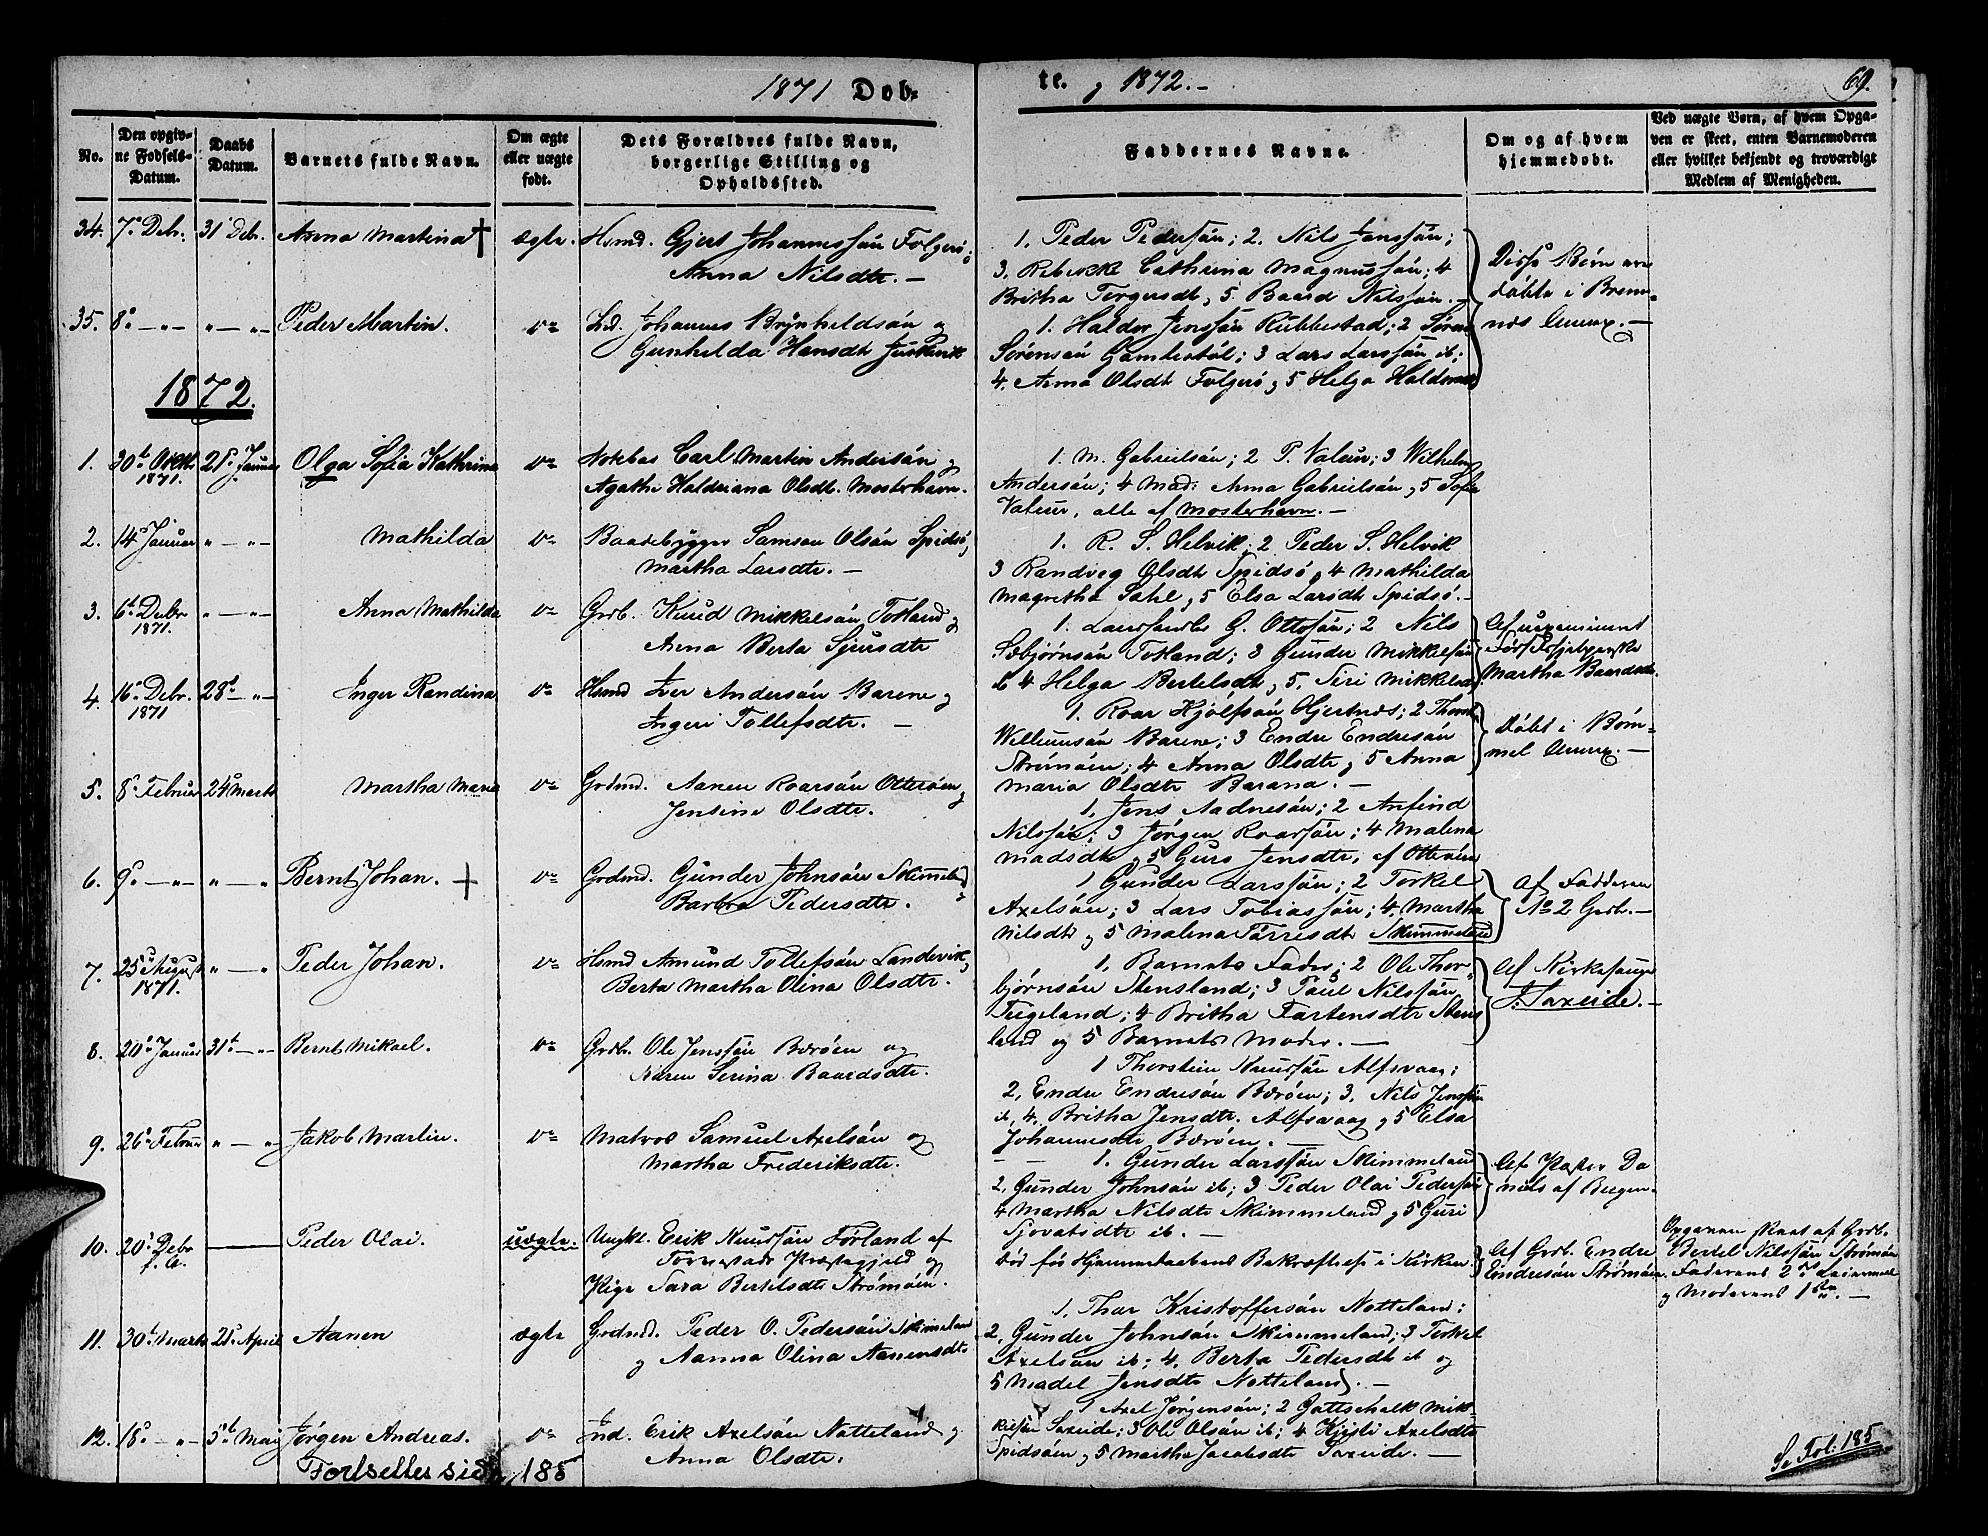 1871 Døb-
te. og 1872.-
69.
No.
Den opgiv-
ne Fødsels-
Datum.
Daabs
Datum.
Barnets fulde Navn.
Om ægte
eller uægte
født.
Dets Forældres fulde Navn,
borgerlige Stilling og
Opholdssted.
Faddernes Navne.
Om og af hvem
hjemmedøbt.
Ved uægte Børn, af hvem Opga-
ven er skeet, enten Barnemoderen
eller hvilket bekjendt og troværdigt
Medlem af Menigheden.
34. 7de Debr. 31 Debr. Anna Martina † ægte. Hsmd. Gjert Johannessøn Folgerø;
Anna Nilsdtr. -
1. Peder Pedersøn; 2. Nils Janssøn;
3. Rebekke Cathrina Magnussøn; 4
Britha Torgersdt og 5. Baard Nilssøn. -
Disse Børn ere
døbte i Brem-
næs Annex. -
35. 8de -"- "-"- Peder Martin. do Ind. Johannes Brynhildsøn og
Gunhilda Hansdt
1. Haldor Jenssøn Rubbestad; 2 Søren
Sørensøn Gambestøl; 3 Lars Larssøn ib;
4. Anna Olsdt Folgerø og 5 Helga Haldorsdt
1872.
1. 30te 1871. 21de Januar Olga Sofia Kathrina do Notebas Carl Martin Andersøn og
Agathe Haldriana Olsdt. Mosterhavn.
1. M. Gabrielsøn; 2 P. Valeur; 3 Wilhelm
Andersøn; 4 Mad: Anna Gabrielsøn og 5 Sofie
Valeur, alle af Mosterhavn. -
2. 14de Januar "-"- Mathilda do Baadebygger Samson Olsøn Spidsø,
Martha Larsdtr. -
1. R. S. Helvik; 2 Peder S. Helvik
3 Randveg Olsdt Spidsø og 4 Mathilda
Magretha Sahl og 5 Elsa Larsdt Spidsø. -
3. 6te Debr 1871. "-"- Anna Mathilda do Grdb. Knud Mikkelsøn Totland og
Anna Berta Sjursdtr
1. Landhandler G. Ottosøn; 2 Nils
Sæbjørnsøn Totland; 3 Gunder Mikkelsøn
ib 4 Helga Bertelsdt og 5. Siri Mikkelsdt
Af uexamineret
Martha Baardsdtr.
4. 16de Debr. 1871 28de -"- Inger Randina do Hsmd Iver Andersøn Barene og
Ingeri Tollefsdtr. -
1. Roar Hjølfsøn Gjertnæs; 2 Thore
Willumsøn Barene; 3 Endre Endresøn
Strømøen; 4 Anna Olsdtr og 5 Anna
Maria Olsdtr Barana. -
Døbt i Bøm-
mel Annex. -
5. 8de Februar 24de Marts Martha Maria do Grdmd. Aanen Roarsøn Otterøen og
Jensine Olsdtr.
1, Jens Aadnesøn; 2 Anfind
Nilssøn; 3 Jørgen Roarsøn; 4 Malena
Madsdtr og 5 Guro Jensdtr, af Otterøen
6. 9de -"- "-"- Bernt Johan. † do Grdmd. Gunder Johnsøn Skimmeland
Barbra Pedersdtr.
1 Gunder Larssøn; 2 Torkel
Axelsøn; 3 Lars Tobiassøn; 4, Martha
Nilsdt og 5 Malena Tørresdt Skimmeland
Af Fadderen
No 2 Grdb. -
7. 25de August 1871. "-"- Peder Johan. do Hsmd Amund Tollefsøn Landevik,
Berta Martha Olina Olsdtr.
1. Barnets Fader; 2 Ole Thor-
bjørnsøn Stensland; 3 Paul Nilssøn
Tegeland; 4 Britha Fartensdtr Stens
land og 5 Barnets Moder. -
Af Kirkesanger
J. Saxeide. -
8. 20de Januar 31te -"- Bernt Mikael. do Grdbr. Ole Jenssøn Børøen og
Karen Serina Baardsdtr.
1 Thorstein Knudsøn Alfsvaag;
2, Endre Endresøn Børøen; 3. Nils Jenssøn
ib, 4. Britha Jensdtr. Alfsvaag og 5 Elsa
Johannesdtr Børøen. -
9. 26de Februar "-"- Jakob Martin. do Matros Samuel Axelsøn og
Martha Frederiksdtr.
1. Gunder Larssøn Skimmeland
2, Gunder Johnsøn ib; 3 Peder Olai Pedersøn
4 Martha Nilsdtr Skimmeland og 5 Guri
Sjovatsdtr ib. -
Af Pastor Da
niels af Bergen.
10. 20de Debr f. A. — Peder Olai. uægte. Ungkl. Erik Knudsøn Førland af
Tornestads Præstegjeld og
Pige Sara Bertelsdtr Strømøen.
Død før Hjemmedaabens Bekræftelse i Kirken.
Af Grdb. Endre
Endresøn Strømøen.
Opgaven skeet af Grdb.
Bertel Nilssøn Strømøen
Faderens 2det Leiermaal
og Moderens 1ste. -
11. 30te Marts 21de April Aanen ægte Grdmd. Peder O. Pedersøn Skimmeland
og Aanna Olina Aanensdtr
1, Thor Kristoffersøn Notteland;
2, Gunder Johnsøn Skimmeland; 3 Torkel
Axelsøn ib; 4. Berta Pedersdt ib og
5 Madel Jensdtr Notteland. -
12. 18de -"- 5te Mai Jørgen Andreas. do Ind. Erik Axelsøn Notteland og
Anna Olsdtr.
1 Axel Jørgensøn; 2 Gottschalk Mik-
kelsøn Saxeide; 3 Ole Olsøn ib; 4 Kjersti Axelsdtr
Spidsøen og 5 Martha Jacobsdtr Saxeide. -
Fortsettes side 185
Se Fol. 185